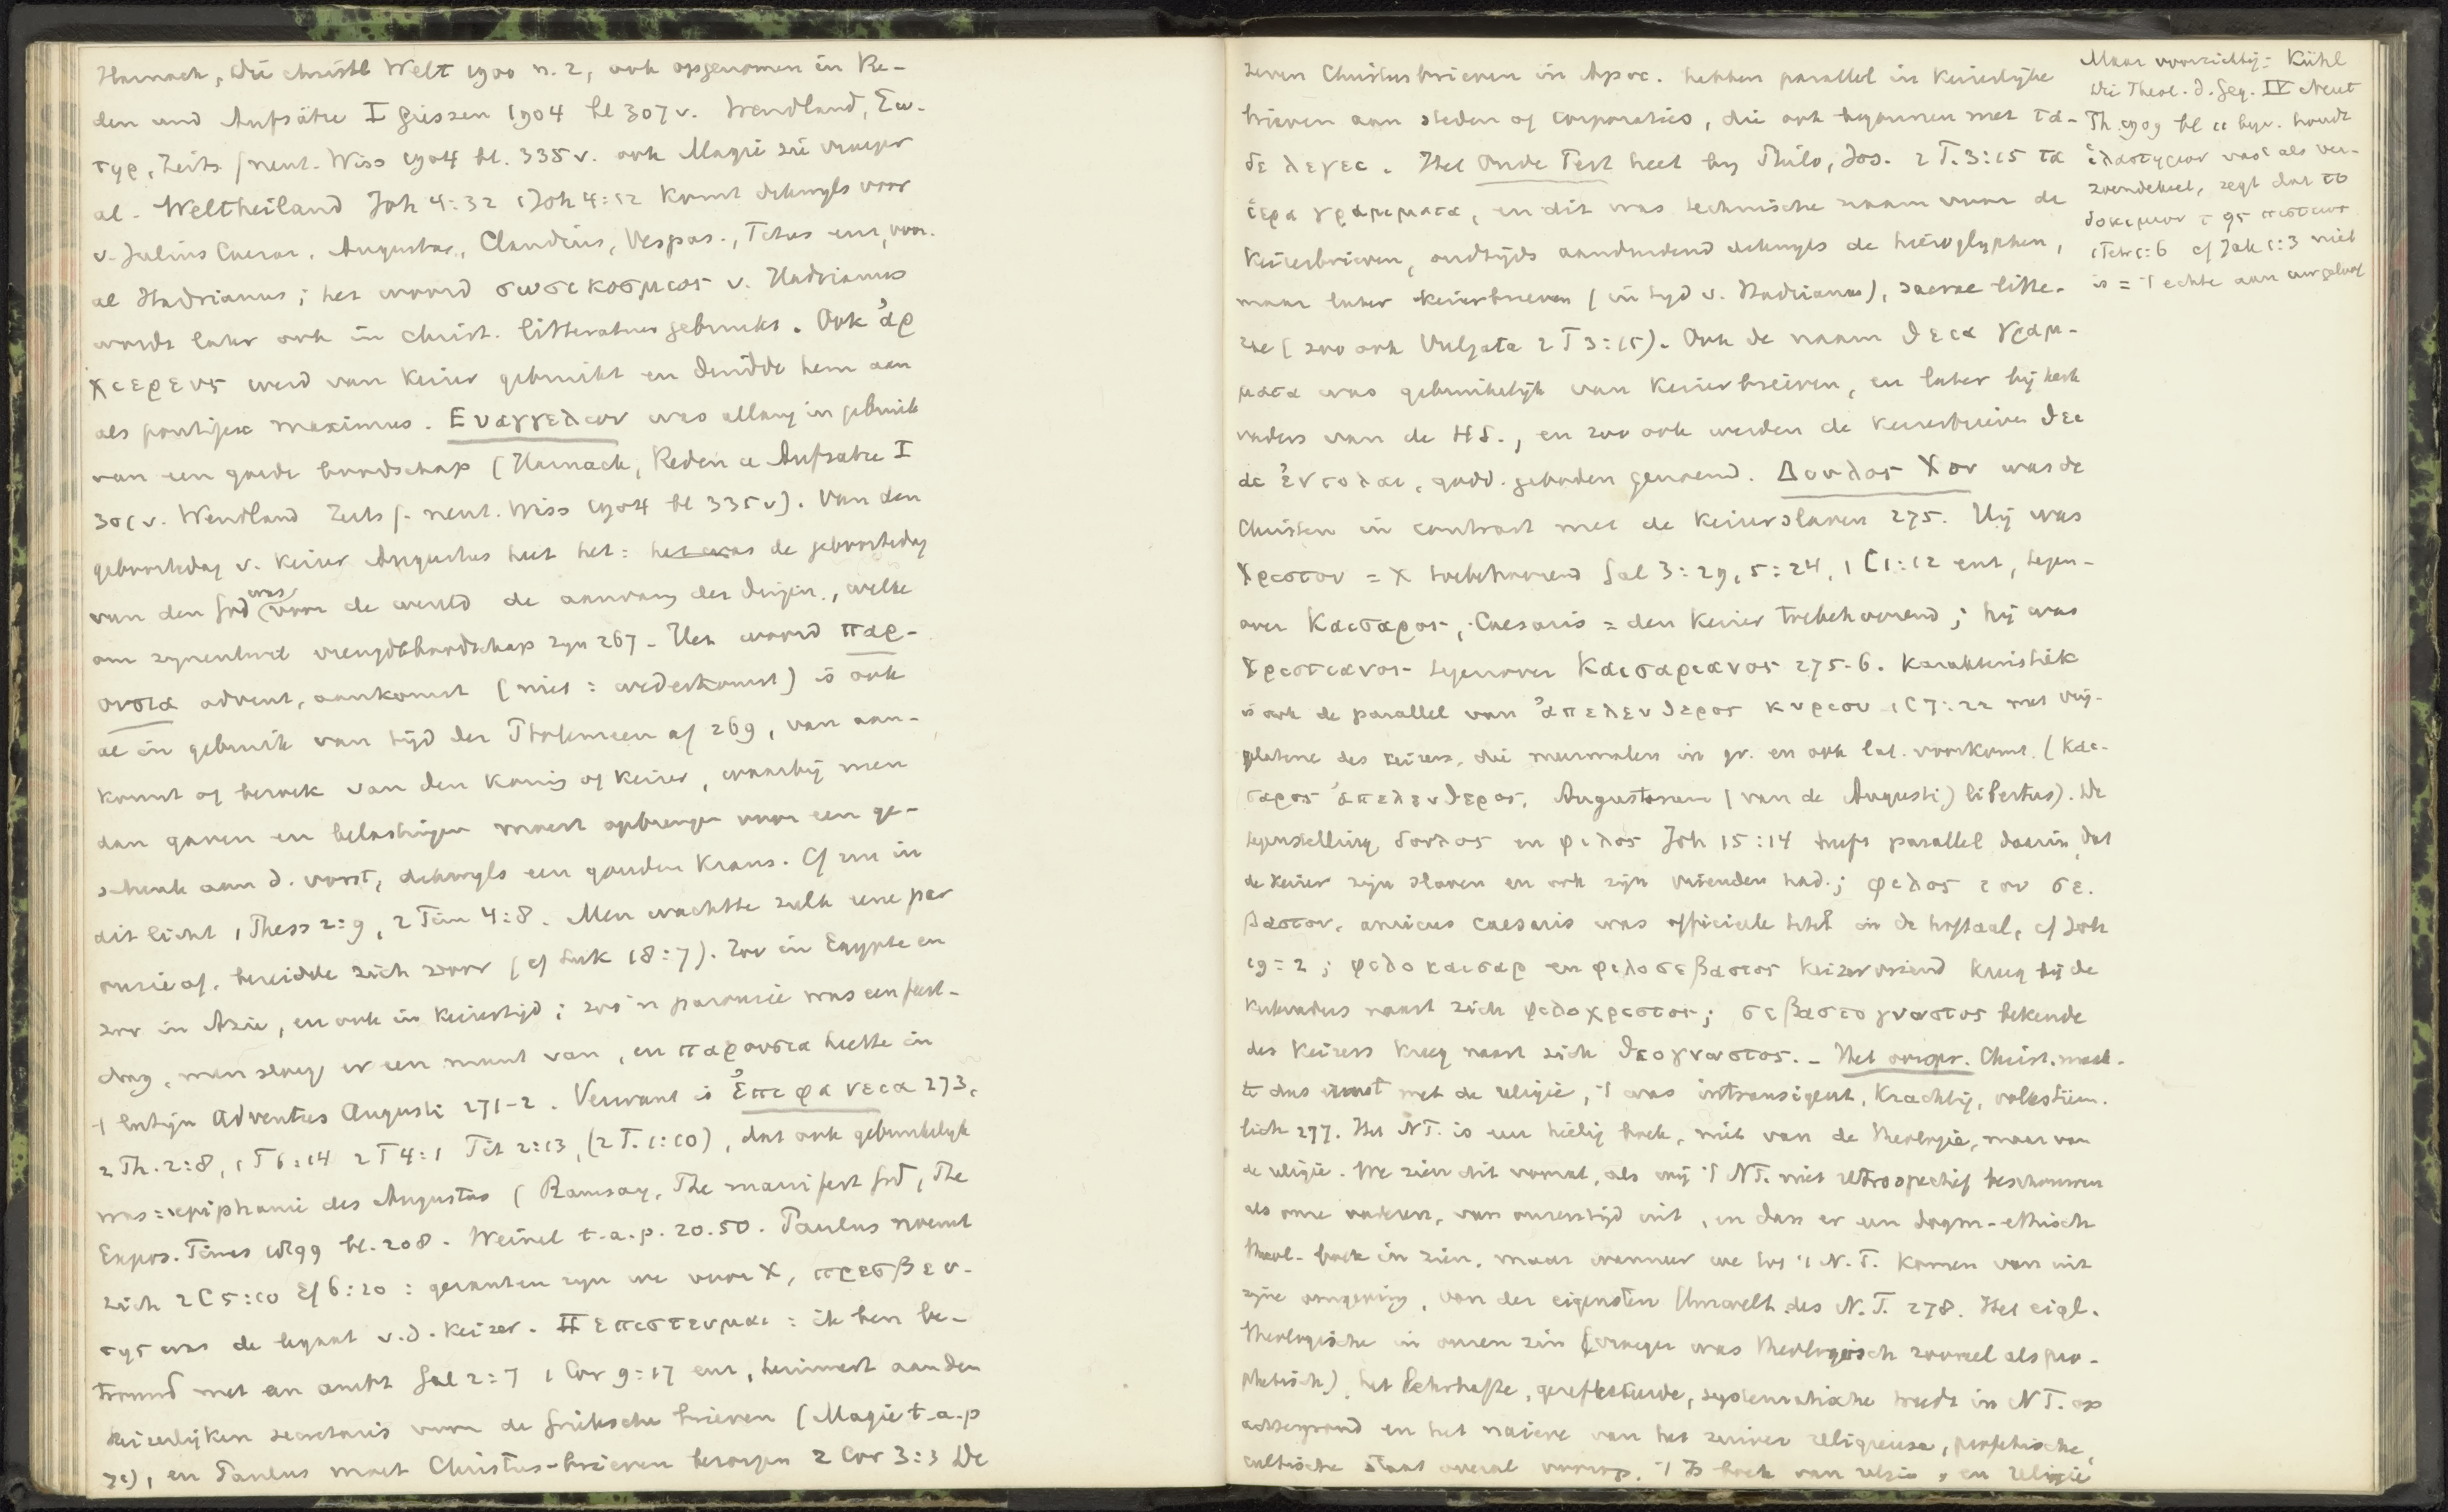 Harnack, Die christl Welt 1900 n. 2, ook opgenomen in Re-
den und Aufsätze I Giessen 1904 bl 307 v. Wendland, Σω-
τηρ, Zeits f neut. Wiss 1904 bl. 335 v. ook Magie zie vroeger
al. Weltheiland Joh 4:32 1 Joh 4:12 komt dikwyls voor
v. Julius Caesar, Augustus, Claudius, Vespas., Titus enz, voor-
al Hadrianus; het woord σωσικοσμιος v. Hadrianus
wordt later ook in christ. litteratuur gebruikt. Ook ἀρ
χιερευς werd van keizer gebruikt en duidde hem aan
als pontifex maximus. Ευαγγελιον was allang in gebruik
van een goede boodschap (Harnack, Reden u Aufsatze I
301 v. Wendland Zeits f. neut. Wiss 1904 bl 335 v). Van den
geboortedag v. keizer Augustus heet het: het was de geboortedag
van den God was voor de wereld de aanvang der dingen, welke
om zynentwil vreugdeboodschap zyn 267. Het woord παρ-
ουσια advent, aankomst (niet: wederkomst) is ook
al in gebruik van tijd der Ptolemeen af 269, van aan-
komst of bezoek van den koning of keizer, waarbij men
dan gaven en belastingen moest opbrengen voor een ge-
schenk aan d. vorst, dikwyls een gouden krans. Cf nu in
dit licht 1 Thess 2:9, 2 Tim 4:8. Men wachtte zulk eene par
ousie af, bereidde zich voor (cf Luk 18:7). Zoo in Egypte en
zoo in Azie, en ook in keizertijd; zoo'n parousie was een feest-
dag, men sloeg er een munt van, en παρουσια heette in
't latijn Adventus Augusti 271-2. Verwant is ἐπιφανεια 273,
2 Th. 2:8, 1 T 6:14 2 T 4:1 Tit 2:13, (2 T. 1:10), dat ook gebruikelyk
was: epiphanie des Augustus (Ramsay, The manifest God, The
Expos. Times 1899 bl. 208. Weinel t.a.p. 20. 50. Paulus noemt
zich 2 C 5:20 Ef 6:20: gezanten zyn we voor X, πρεσβευ-
της was de legaat v.d. keizer. Πεπιστευμαι: ik ben be-
trouwd met an ambt Gal 2:7 1 Cor 9:17 enz, herinnert aan den
keizerlijken secretaris voor de Grieksche brieven (Magie t.a.p
71), en Paulus moet Christus-brieven bezorgen 2 Cor 3:3 De
zeven Christusbrieven in Apoc. hebben parallel in keizerlyke
brieven aan steden of corporaties, die ook begonnen met τα-
δε λεγει. Het Oude Test heet by Philo, Jos. 2 T. 3:15 τα
ἱερα γραμματα, en dit was technische naam voor de
keizerbrieven, oudtijds aanduidend dikwyls de hiëroglyphen,
maar later keizerbrieven (in tyd v. Hadrianus), sacrae litte-
rae (zoo ook Vulgata 2 T 3:15). Ook de naam θεια γραμ-
ματα was gebruikelijk van keizerbrieven, en later bij kerk
vaders van de HS., en zoo ook werden de keizerbrieven θει
αι ἐντολαι, godd. geboden genoemd. Δουλος Χου was de
Christen in contrast met de keizerslaven 275. Hij was
Χριστου = X toebehoorend Gal 3:29, 5:24, 1 C 1:12 enz, tegen-
over Καισαρος, Caesaris = den keizer toebehoorend; hij was
Χριστιανος tegenover Καισαριανος 275-6. Karakteristiek
is ook de parallel van ἀπελευθερος κυριου 1 C 7:22 met vrij-
gelatene des keizers, die meermalen in gr. en ook lat. voorkomt. (Και-
σαρος ἀπελευθερος, Augustorum (van de Augusti) libertus). De
tegenstelling δουλος en φιλος Joh 15:14 treft parallel daarin, dat
de keizer zijn slaven en ook zijn vrienden had; φιλος του σε-
βαστου, amicus caesaris was officieele titel in de hoftaal, cf Joh
19:2; φιλοκαισαρ en φιλοσεβαστος keizervriend kreeg bij de
kerkvaders naast zich φιλοχριστος; σεβαστογνωστος bekende
des keizers kreeg naast zich θεογνωστος. - Het oorspr. Christ. maak-
te dus ernst met de religie, 't was intransigent, krachtig, volkstüm-
lich 277. Het NT. is een heilig boek, niet van de theologie, maar van
de religie. We zien dit vooral, als wij 't NT. niet retrospectief beschouwen
als onze vaderen, van onzen tijd uit, en dan er een dogm-ethisch
theol. boek in zien, maar wanneer we tot 't N.T. komen van uit
zijne omgeving, van der eigensten Umwelt des N.T. 278. Het eigl.
theologische in onzen zin (vroeger was theologisch zooveel als pro-
phetisch), het Lehrhafte, gereflekteerde, systematische treedt in NT. op
achtergrond en het naieve van het zuiver religieuse, profetische,
cultische staat overal voorop. 't Is boek van religie, en religie
Maar voorzichtig: Kühl
Die Theol. d. Geg. IV Neut
Th. 1909 bl 11 bijv. houdt
ἱλαστηριον vast als ver-
zoendeksel, zegt dat το
δοκιμιον της πιστεως
1 Petr 1:6 cf Jak 1:3 niet
is = 't echte aan uw geloof